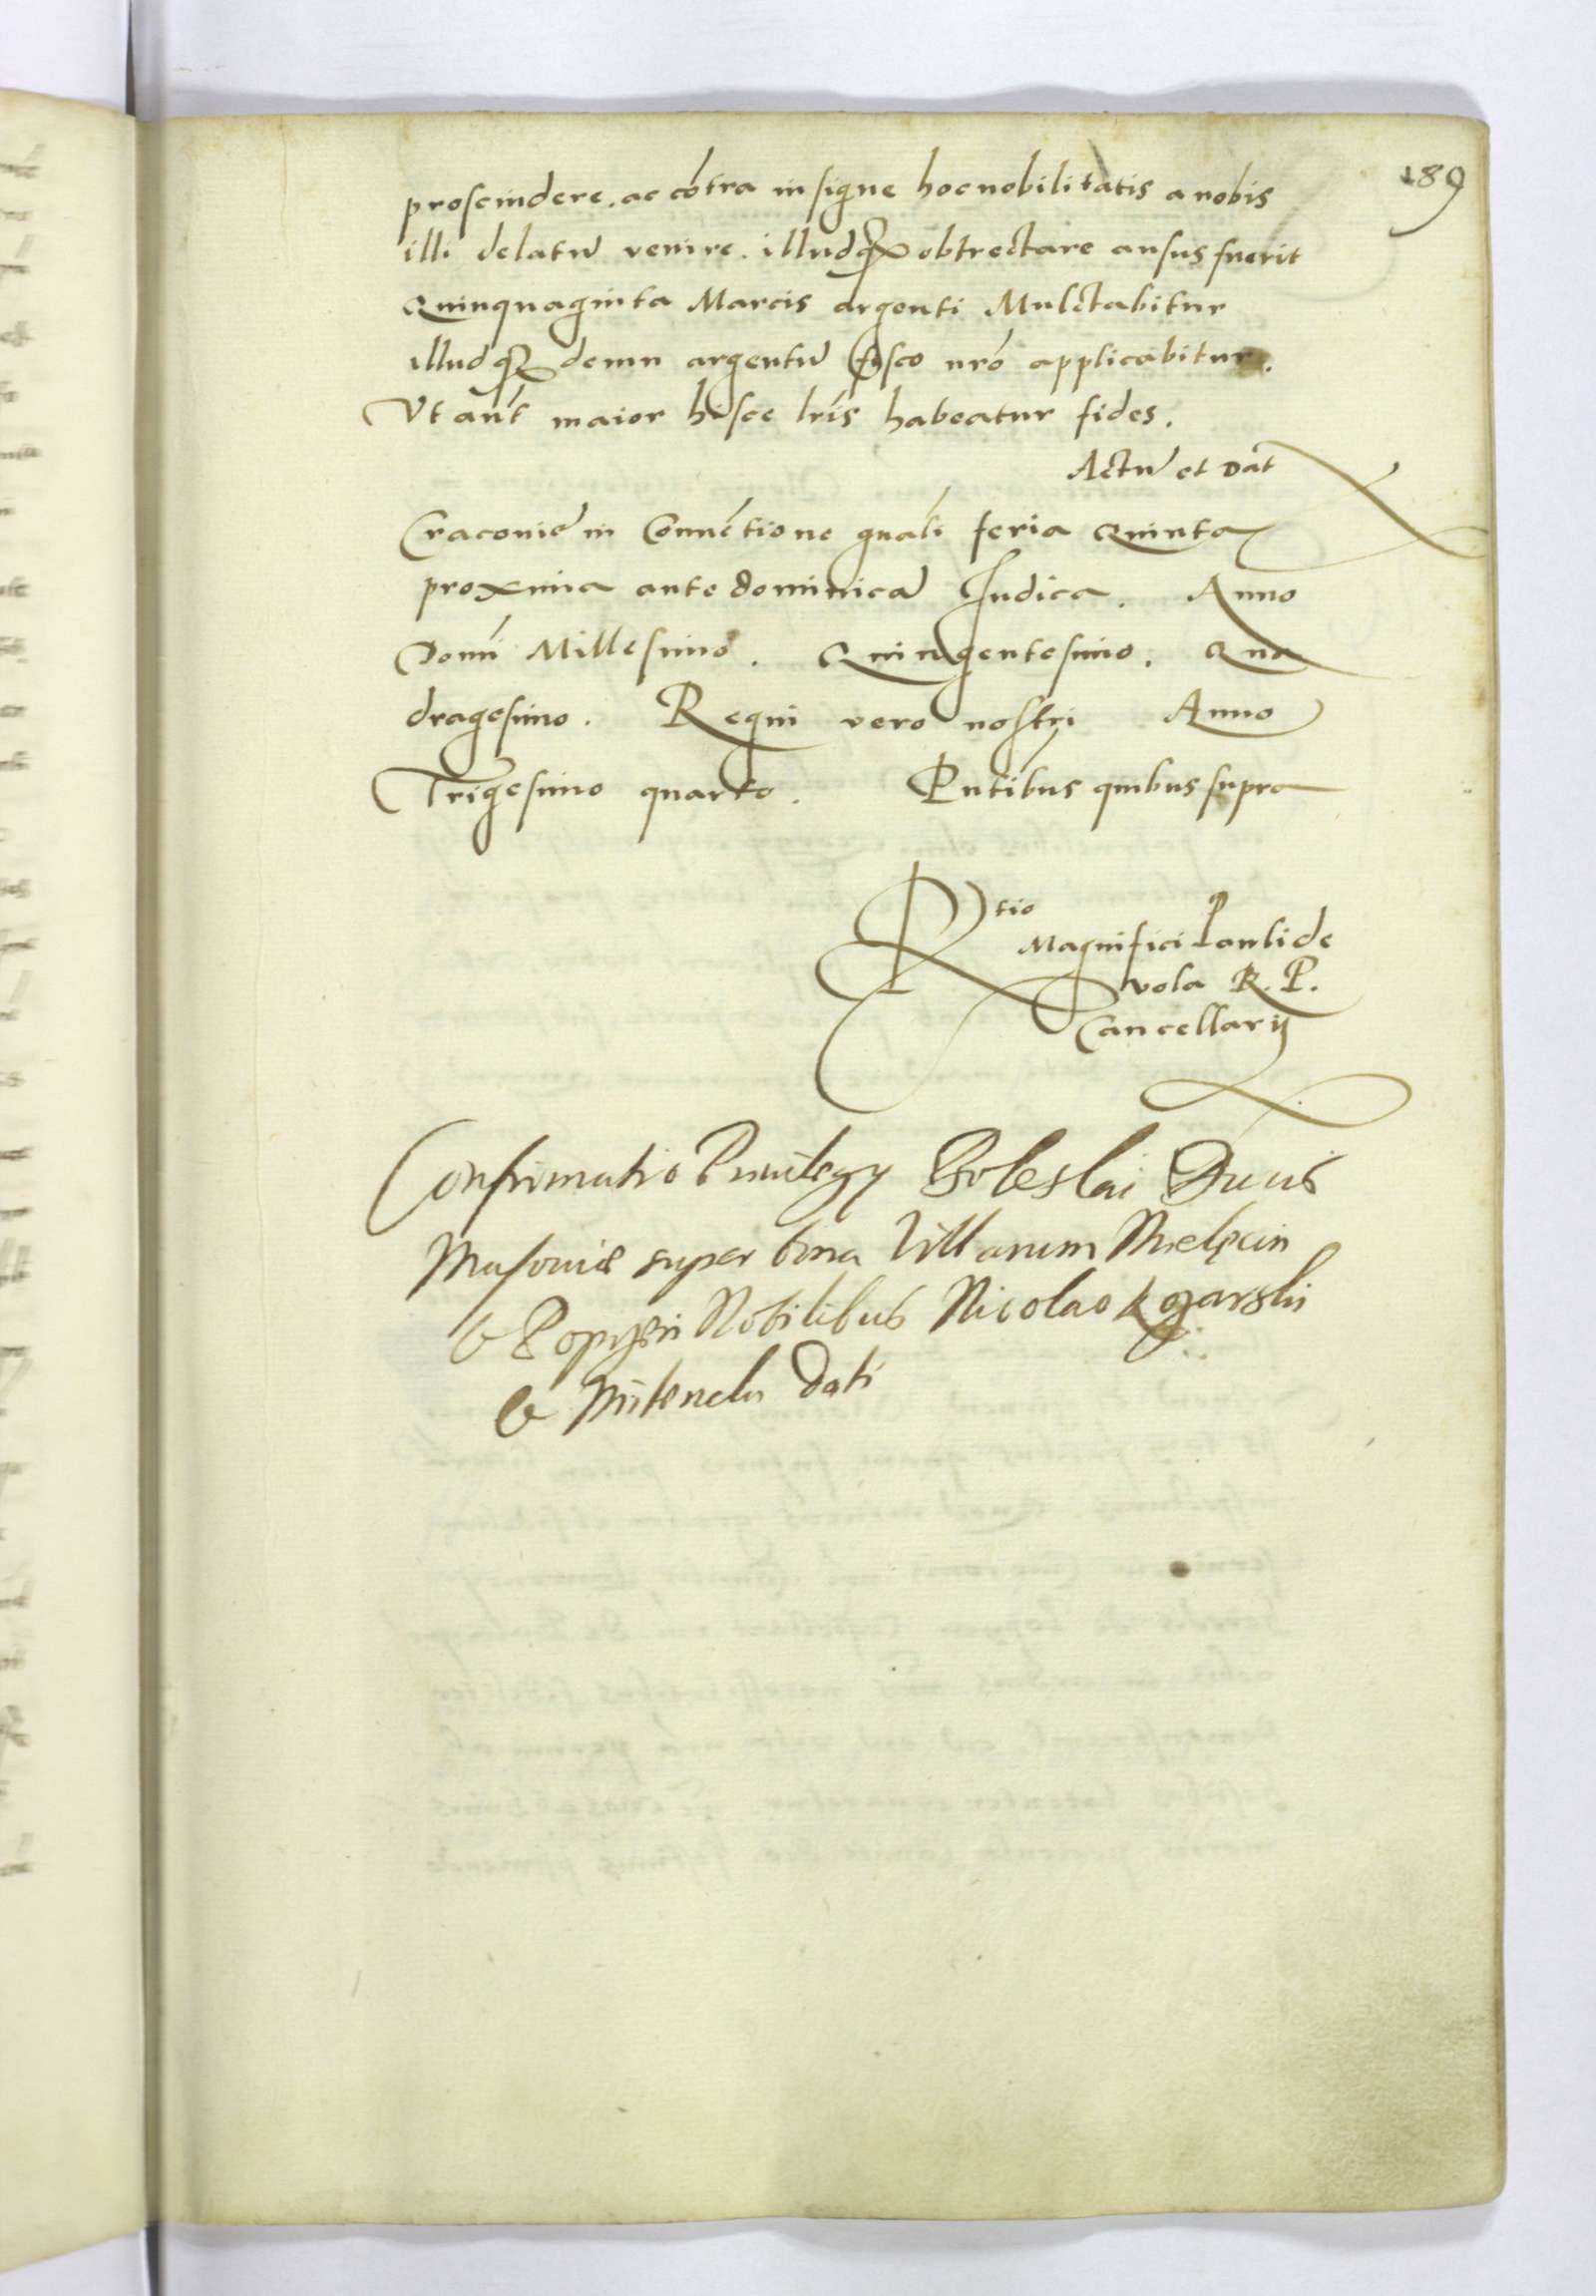 189
proscindere. ac cõtra insigne hoc nobilitatis a nobis
illi delatũ venire. illudq̃ obtrectare ausus fuerit
Quinquaginta Marcis argenti Mulctabitur
illudq̃ demũ argentũ fisco nr̃o applicabitur.
Vt aũt maior hisce lr̃is habeatur fides.
Actũ et Dãt
Cracoviẽ in Convẽtione gnãli feria Quinta
proxima ante dominicã Iudica. Anno
Domĩ Millesimo. Quingentesimo. Qua
dragesimo. Regni vero nostri Anno
Trigesimo quarto. Pñtibus quibus supra
Rtio
Magnifici Pauli de
vola R. P.
Cancellarij
Confirmatio Privilegy Boleslai Ducis
Masoviæ super bona Villarum
& Nobilibus Nicolao
& dati